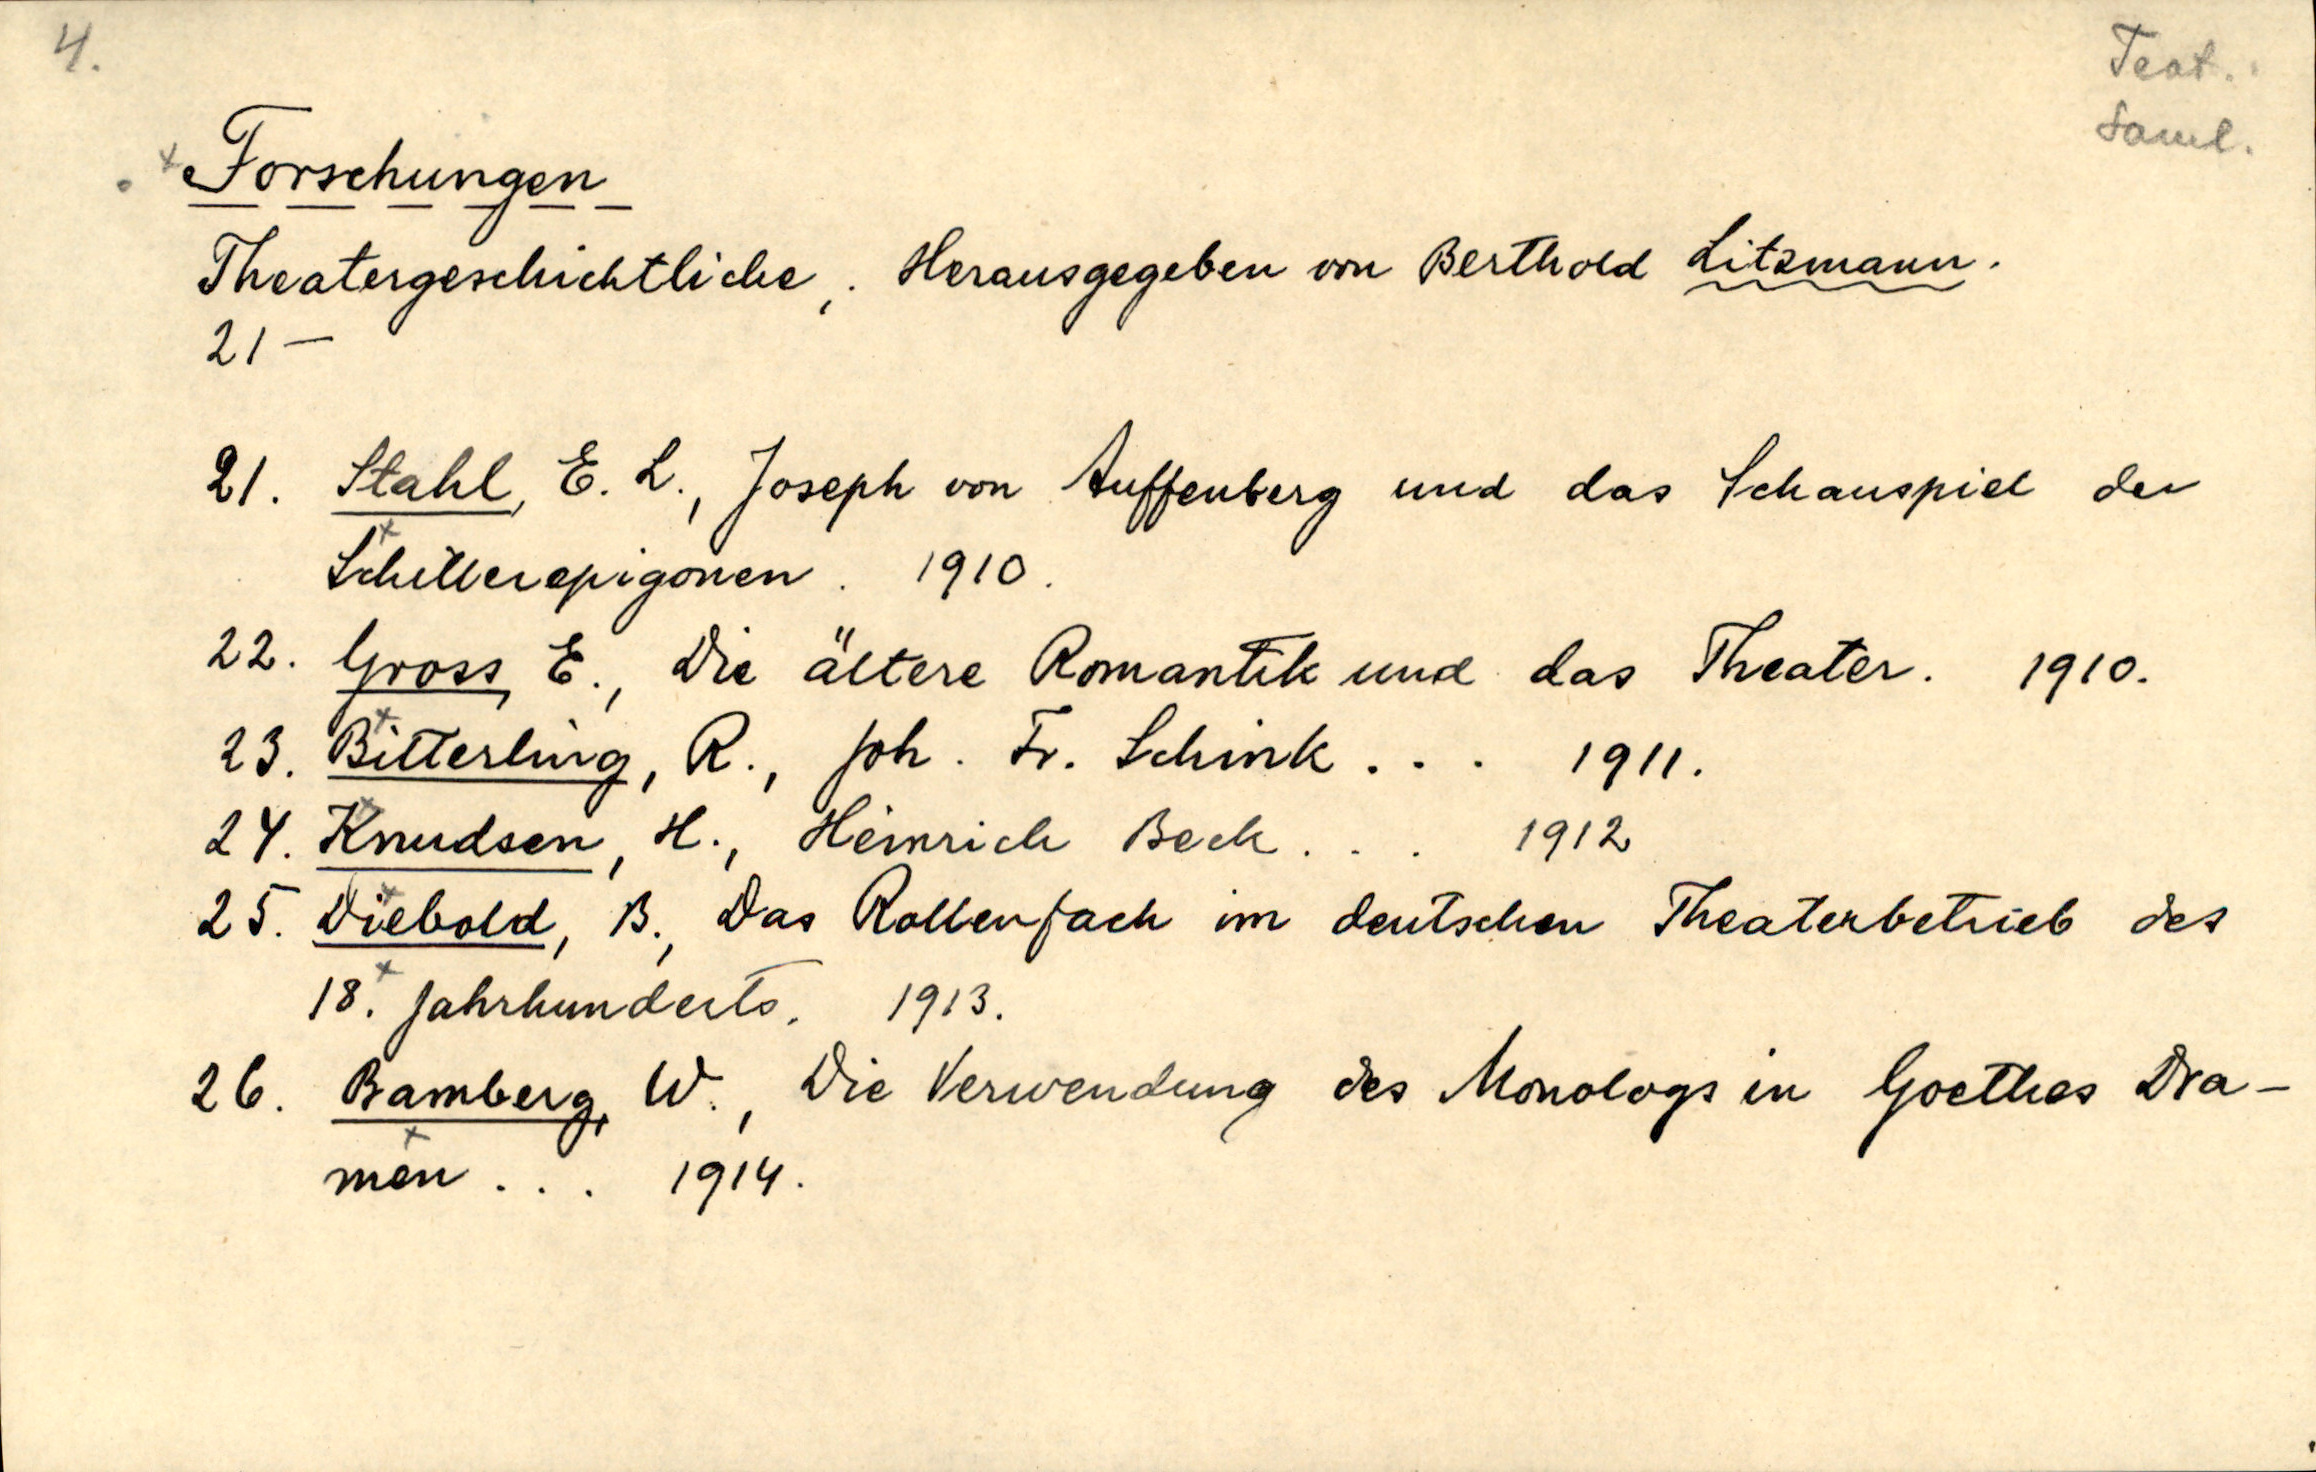 4.
Teat.
Saml.
Forschungen
Theatergeschichtliche,. Herausgegeben von Berthold Litzmann.
21—
21. Stahl, E. L., Joseph von Auffenberg und das Schauspiel der
Schillerepigonen. 1910.
22. Gross, E., Die ältere Romantik und das Theater. 1910.
23. Bitterling, R., Joh. Fr. Schink... 1911.
24. Knudsen, H., Heinrich Beck... 1912
25. Diebold, B., Das Rollenfach im deutschen Theaterbetrieb des
18. Jahrhunderts. 1913.
26. Bamberg, W., Die Verwendung des Monologs in Goethes Dra-
men... 1914.